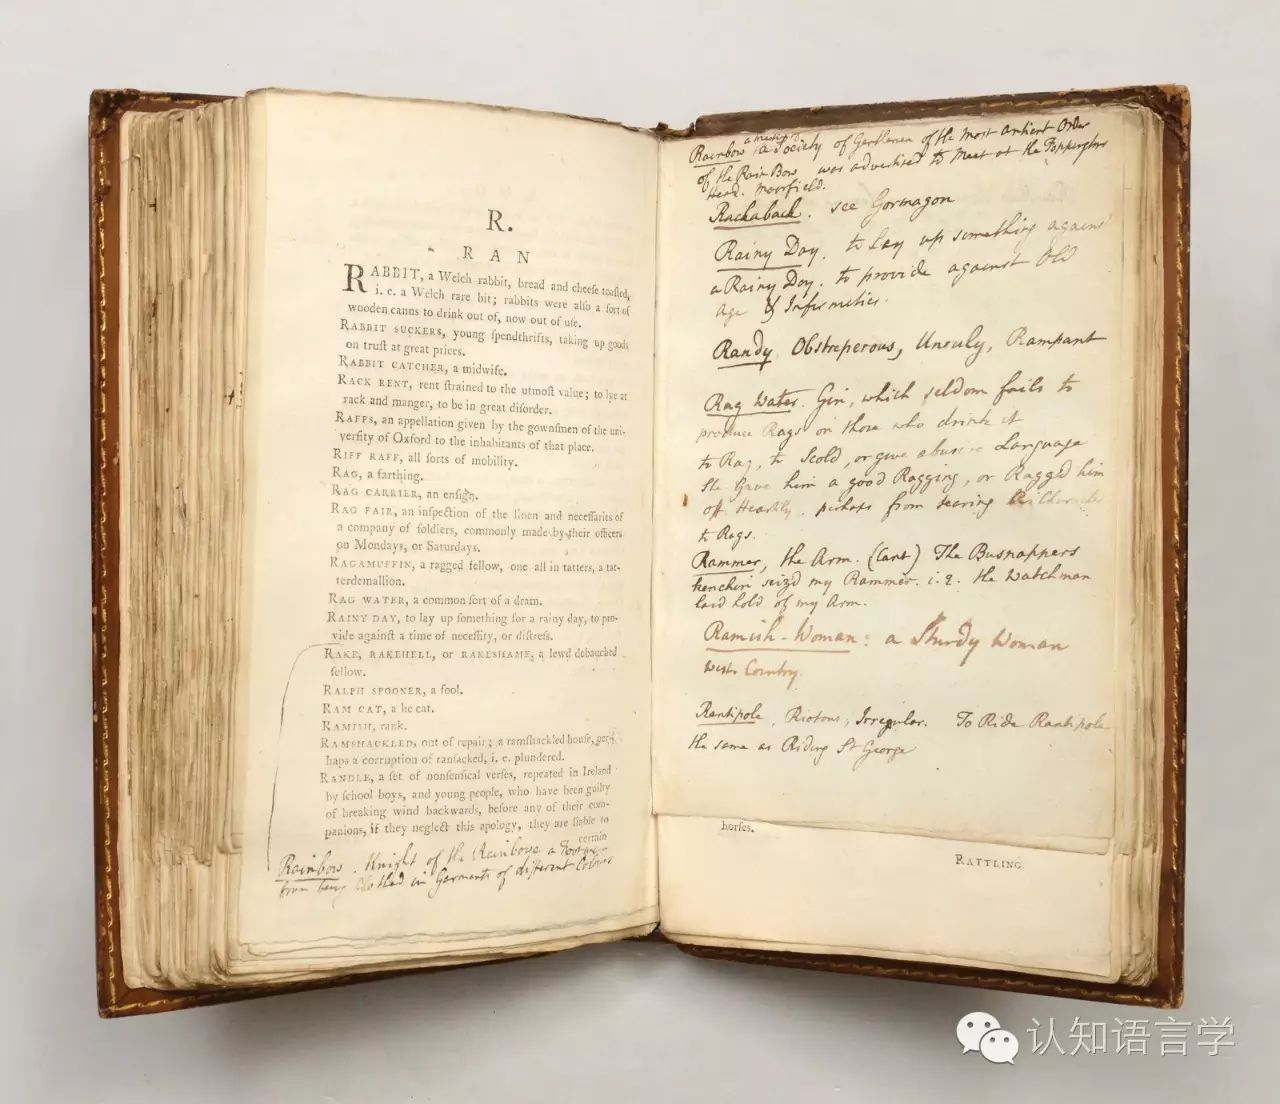 R.
RAN
RABBIT, a Welch rabbit, bread and cheese toasted,
i. e. a Welch rare bit; rabbits were also a sort of
wooden canns to drink out of, now out of use.
RABBIT SUCKERS, young spendthrifts, taking up goods
on trust at great prices.
RABBIT CATCHER, a midwife.
RACK RENT, rent strained to the utmost value; to lye at
rack and manger, to be in great disorder.
RAFFS, an appellation given by the gownsmen of the uni-
versity of Oxford to the inhabitants of that place.
RIFF RAFF, all sorts of mobility.
RAG, a farthing.
RAG CARRIER, an ensign.
RAG FAIR, an inspection of the linen and necessaries of
a company of soldiers, commonly made by their officers
on Mondays, or Saturdays.
RAGAMUFFIN, a ragged fellow, one all in tatters, a tat-
terdemallion.
RAG WATER, a common sort of a dram.
RAINY DAY, to lay up something for a rainy day, to pro-
vide against a time of necessity, or distress.
RAKE, RAKEHELL, or RAKESHAME, a lewd debauched
fellow.
RALPH SPOONER, a fool.
RAM CAT, a he cat.
RAMISH, rank.
RAMSHACKLED, out of repair; a ramshackled house, per-
haps a corruption of ransacked, i. e. plundered.
RANDLE, a set of nonsensical verses, repeated in Ireland
by school boys, and young people, who have been guilty
of breaking wind backwards, before any of their com-
panions, if they neglect this apology, they are liable to
certain
Rainbow. Knight of the Rainbow a Footman
from being Clothed in Garments of different Colours
a meeting of
Rainbow a Society of Gentlemen of the most Antient Order
of the Rain Bow was advertised to Meet at the
Head. Moorfield.
Rackaback. see Gormagon
Rainy Day. to lay up something against
a Rainy Day. to provide against Old
Age & Infirmities.
Randy. Obstreperous, Unruly, Rampant
Rag Water. Gin, which seldom fails to
produce Rags on those who drink it
to Rag, to Scold, or give abusive Language
She Gave him a good Ragging, or Ragged him
off Heartily. perhaps from tearing
to Rags.
Rammer, the Arm. (Cant) The Busnappers
kenchin seiz'd my Rammer. i. e. the Watchman
laid hold of my Arm.
Ramish-Woman: a Sturdy Woman
West Country.
Rantipole, Riotous, Irregular. To Ride Rantipole
the same as Riding St George
horses.
RATTLING.
认知语言学